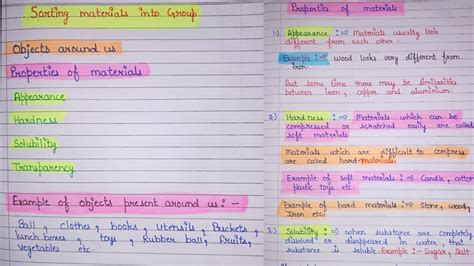 Sorting materials into Group
Objects around us
Properties of materials
Appearance
Hardness
Solubility
Transparency
Example of objects present around us : -
Ball , clothes , books , utensils , Buckets ,
lunch boxes , toys , Rubber ball, fruits,
vegetables etc.
Properties of materials
1) Appearance :⇒ Materials usually look
different from each other.
Example :⇒ wood looks very different from
iron.
But some time there may be similarities
between iron, copper and aluminium.
2) Hardness :⇒ Materials which can be
compressed or scratched easily are called
soft materials
Materials which are difficult to compress
are called hard materials
Example of soft materials ⇒ Candle, cotton
paste toys etc
Example of hard materials ⇒ Stone, wood,
Iron etc
3) Solubility :⇒ when substance are completely
dissolved or disappeared in water, that
substance is soluble. Example :- Sugar, Salt